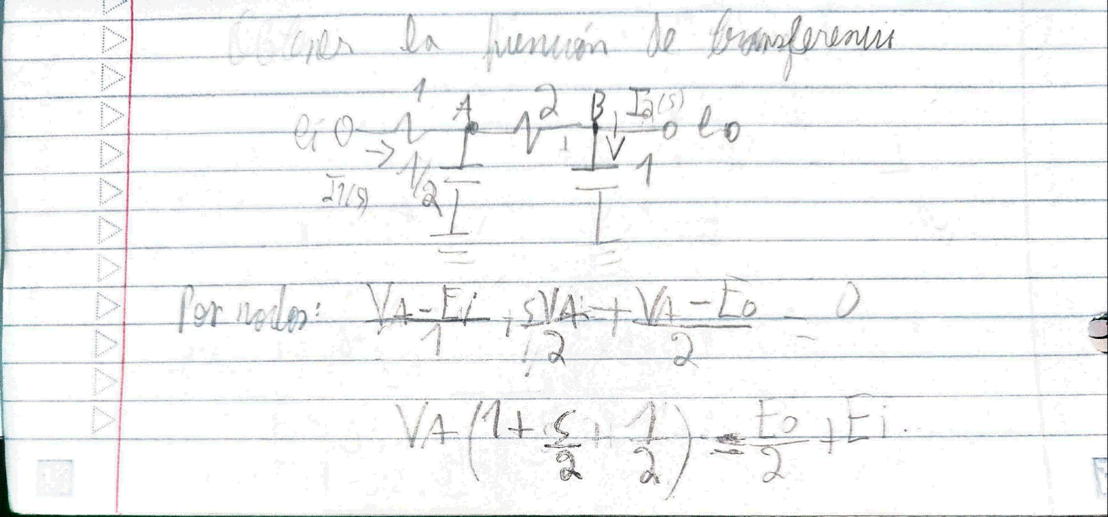 Obtener la función de transferencia
1 A 2 B I2(s)
ei eo
I1(s) 1/2 1
Por nodos: VA-Ei/1 + sVA/2 + VA-Eo/2 = 0
VA(1+s/2+1/2) = Eo/2+Ei.